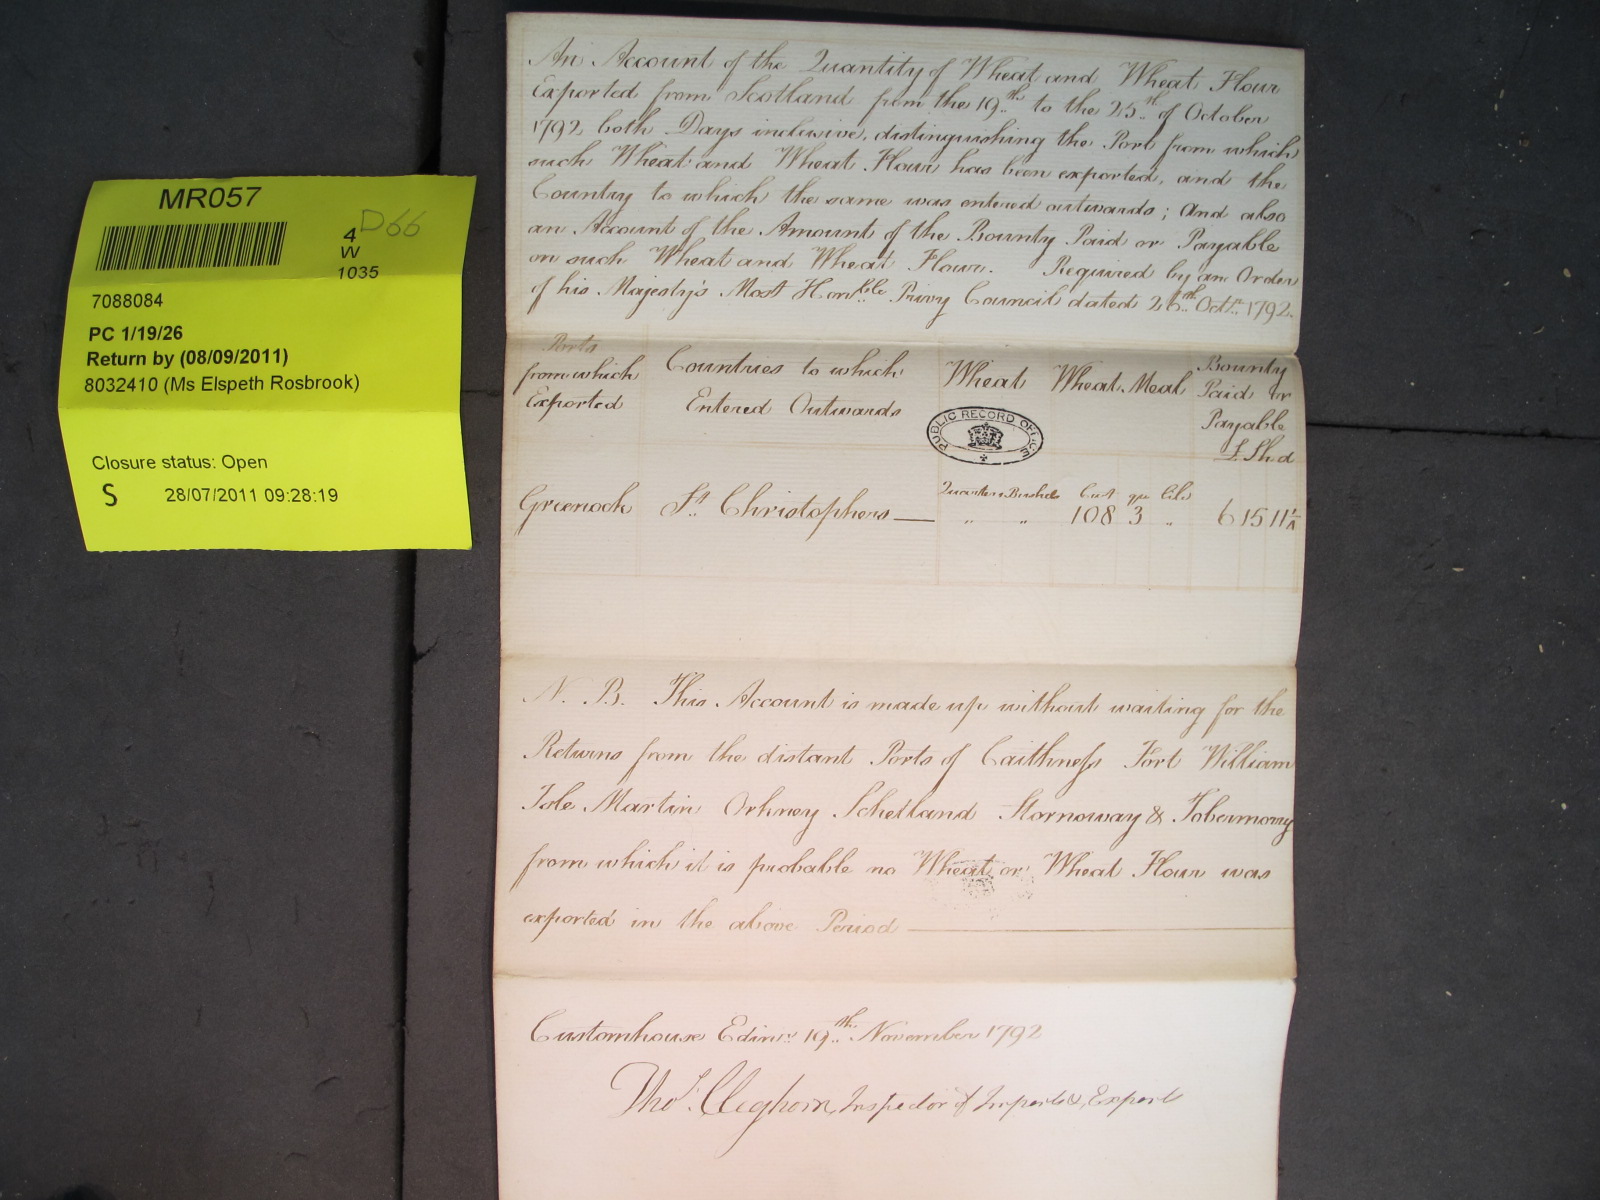 MR057
D66
4
W
1035
7088084
PC 1/19/26
Return by (08/09/2011)
8032410 (Ms Elspeth Rosbrook)
Closure status: Open
S 28/07/2011 09:28:19
An Account of the Quantity of Wheat and Wheat Flour
Exported from Scotland from the 19th to the 25th of October
1792 both Days inclusive, distinguishing the Port from which
such Wheat and Wheat Flour has been exported, and the
Country to which the same was entered outwards; and also
an Account of the Amount of the Bounty Paid or Payable
on such Wheat and Wheat Flour. Required by an Order
of his Majesty's Most Honble Privy Council dated 26th Octr. 1792.
Ports
from which
Exported
Countries to which
Entered Outwards
Wheat
Wheat Meal
Bounty
Paid or
Payable
£ Sh d
PUBLIC RECORD OFFICE
Quarters Bushels Cwt qrs libs
Greenock St. Christophers — " " 108 3 " 6 15 11¼
N. B. This Account is made up without waiting for the
Returns from the distant Ports of Caithness Fort William
Isle Martin Orkney Schetland Stornoway & Tobermorry
from which it is probable no Wheat or Wheat Flour was
exported in the above Period
Customhouse Edinr. 19th November 1792
Thos. Cleghorn, Inspector of Imports & Exports